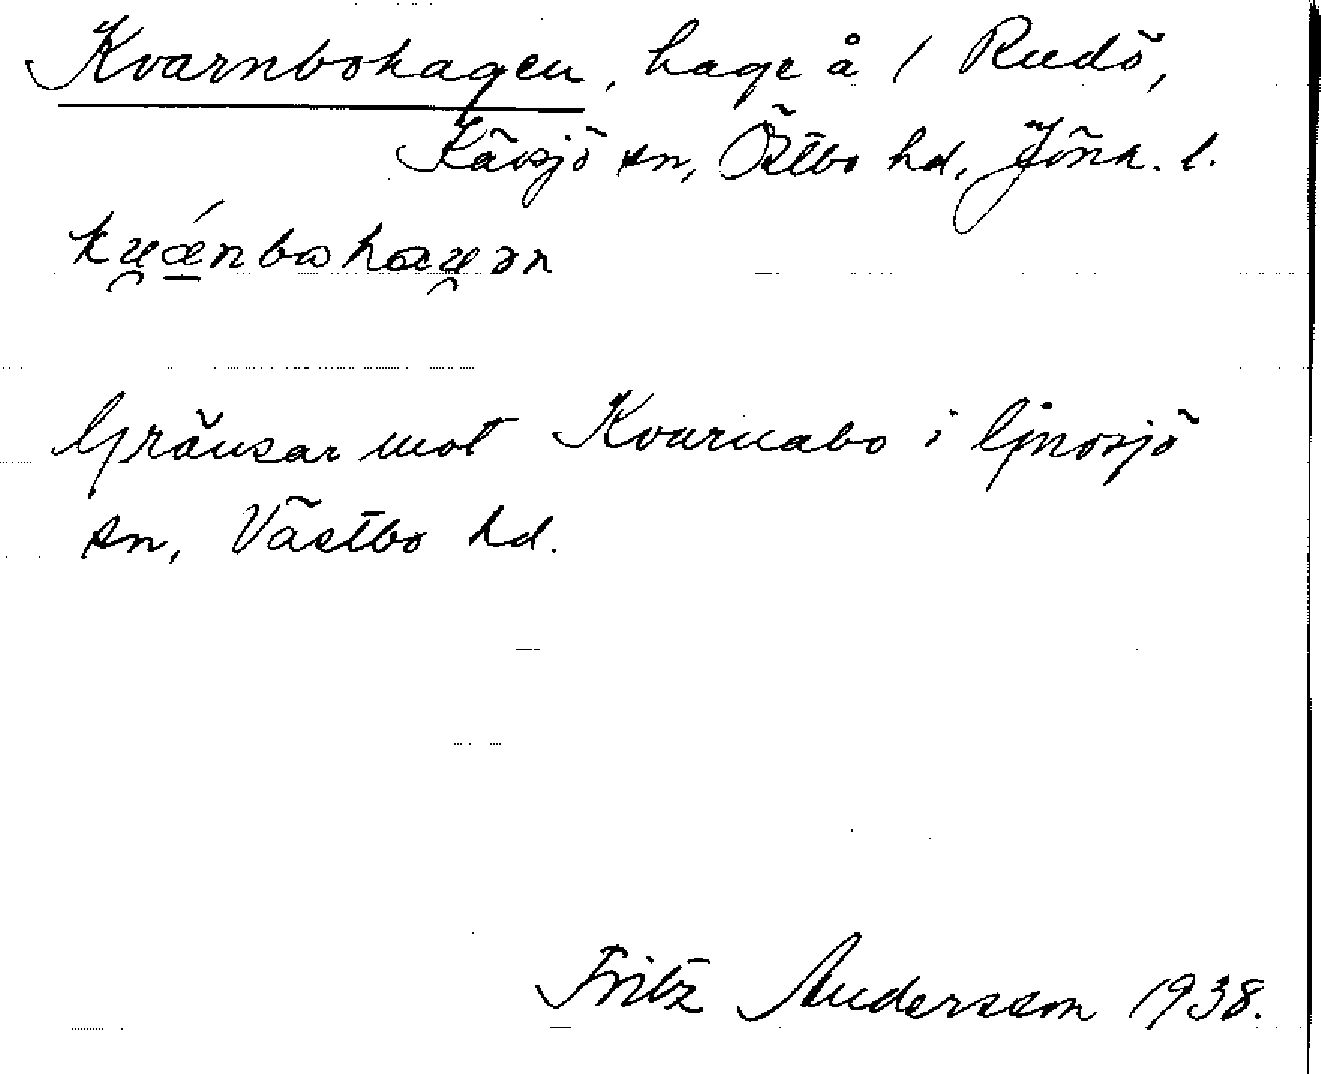 Kvarnbohagen, hage å / Rudö,
Kävsjö sn, Östbo hd, Jönk. l.
Gränsar mot Kvarnabo i Gnosjö
sn, Västbo hd.
Fritz Andersson 1938.